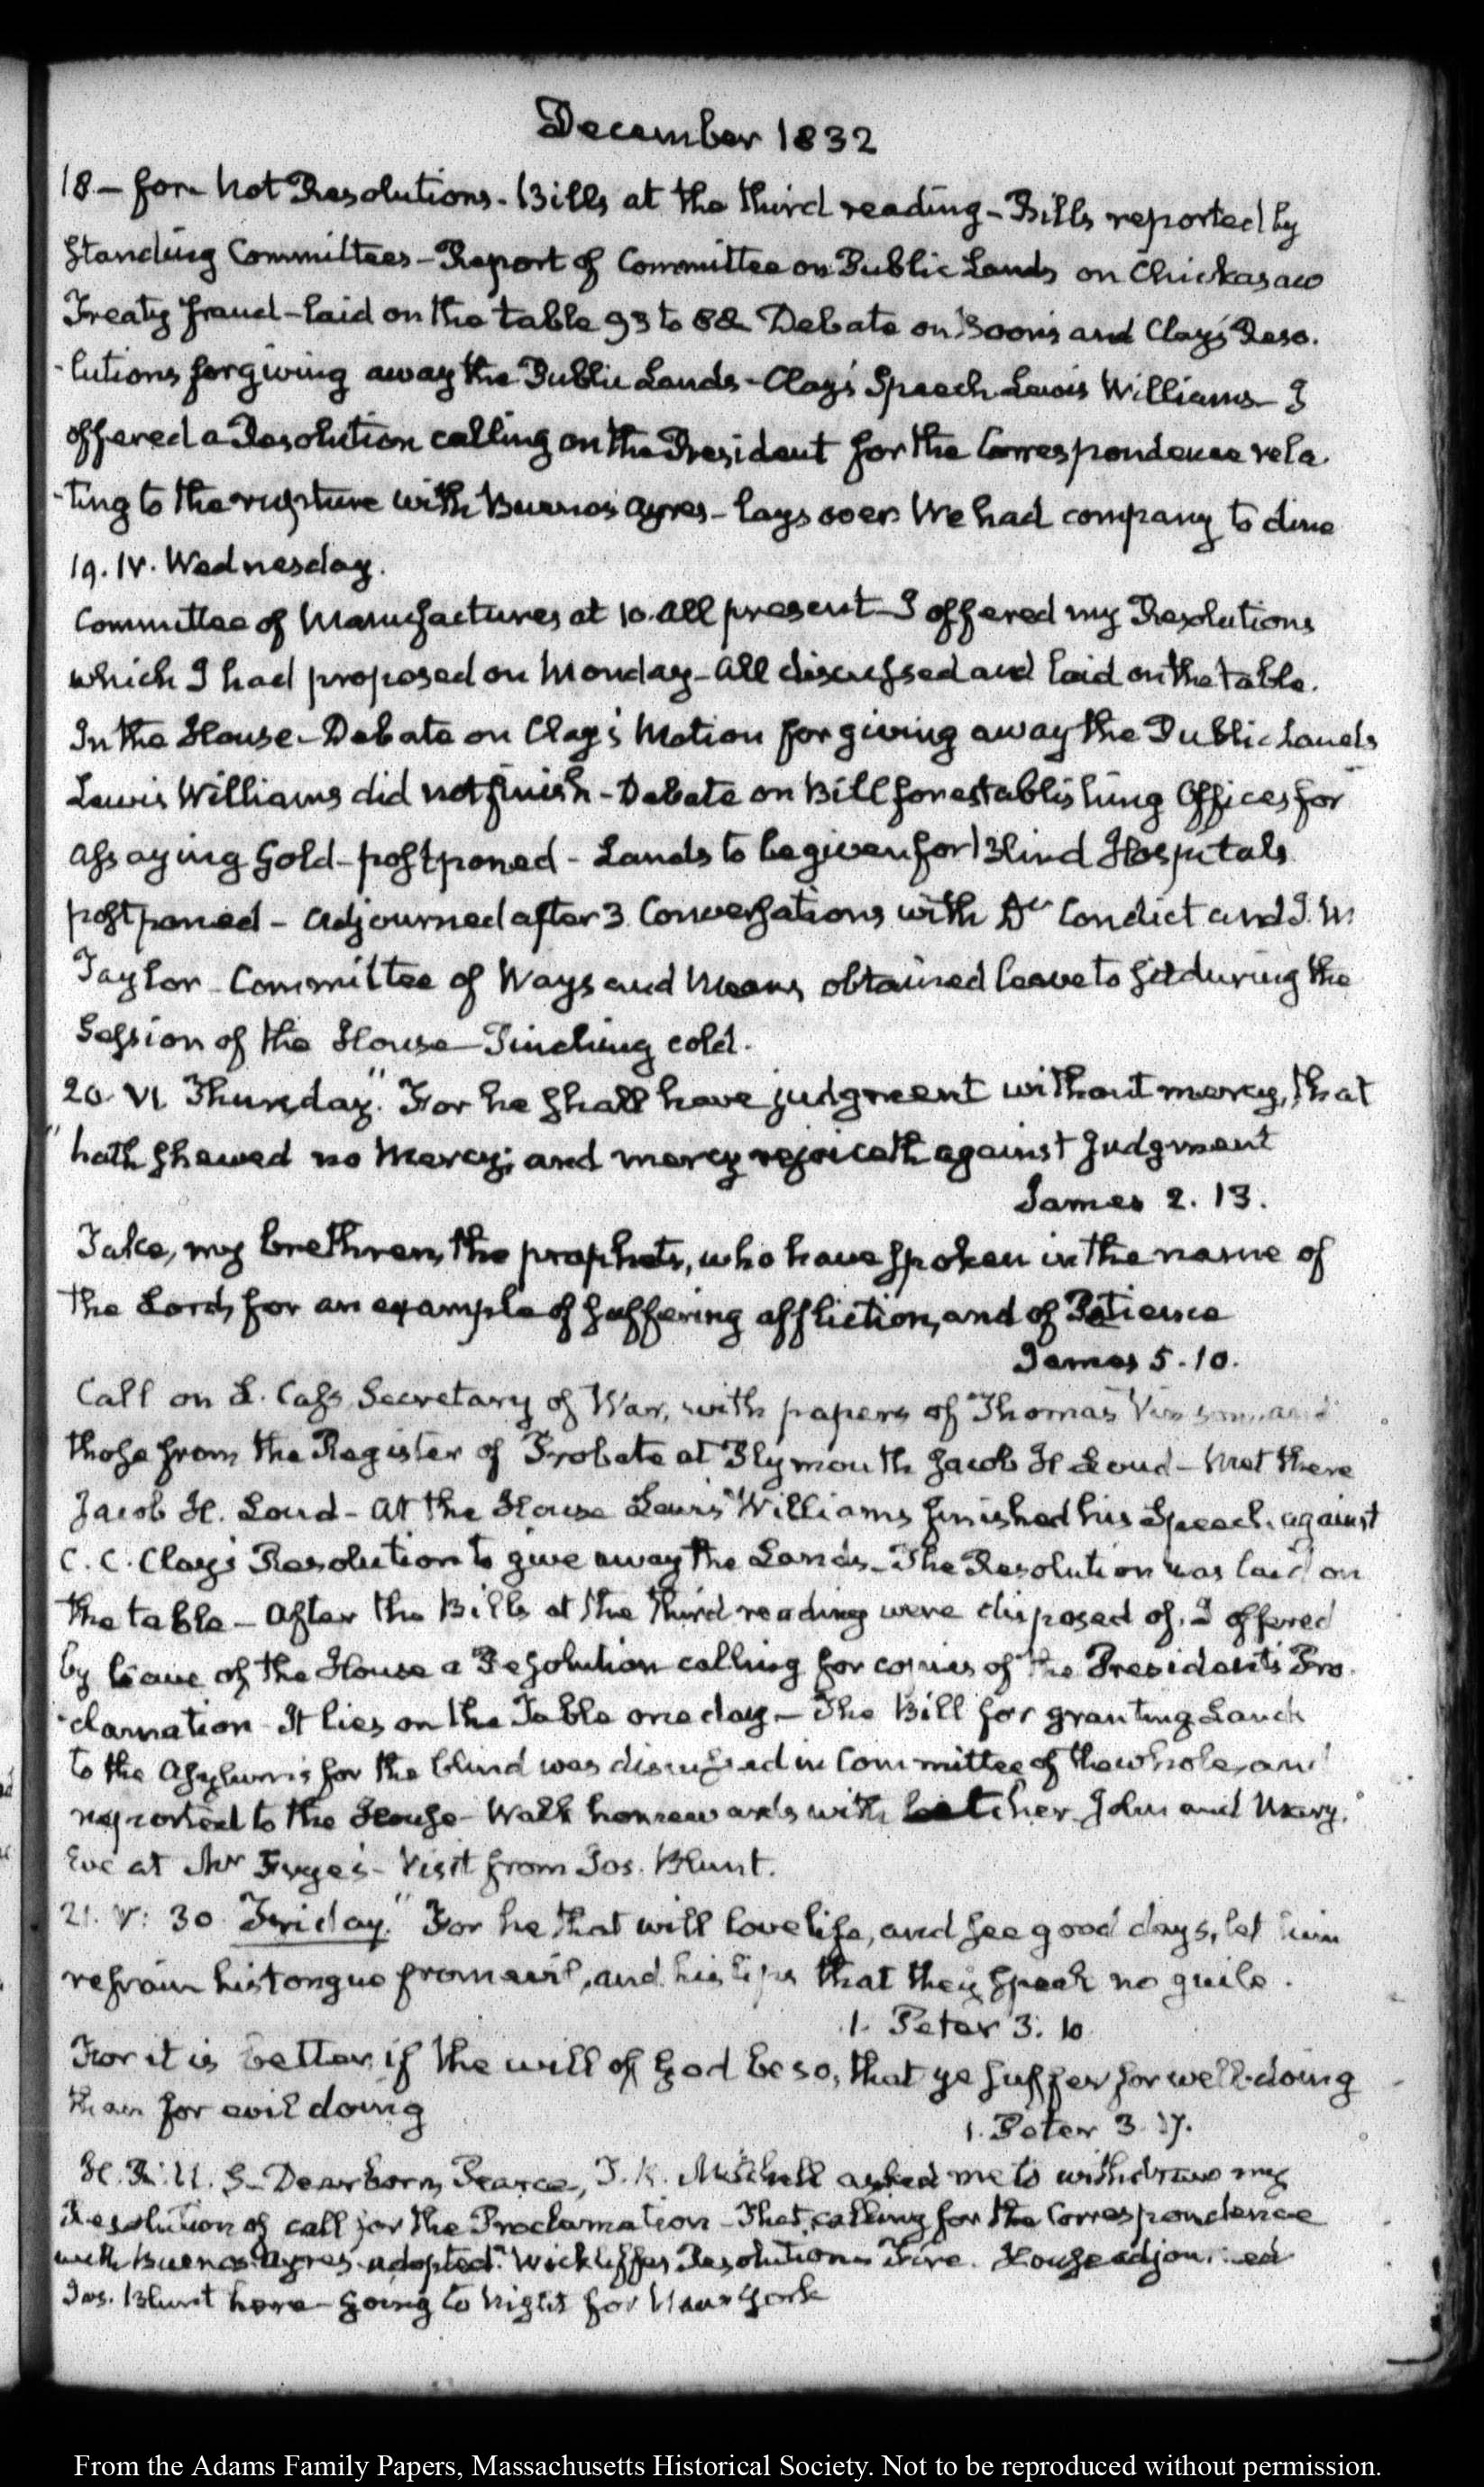 December 1832
18 — for. Not Resolutions. Bills at the third reading — Bills reported by
Standing Committees — Report of Committee on Public Lands on Chickasaw
Treaty fraud — laid on the table 93 to 88 Debate on Boon's and Clay's Reso.
-lutions for giving away the Public Lands — Clay's Speech Lewis Williams — I
offered a Resolution calling on the President for the Correspondence rela.
-ting to the rupture with Buenos Ayres — lays over. We had company to dine
19. IV. Wednesday.
Committee of Manufactures at 10. All present — I offered my Resolutions
which I had proposed on Monday — All discussed and laid on the table.
In the House — Debate on Clay's Motion for giving away the Public Lands
Lewis Williams did not finish — Debate on Bill for establishing Offices for
assaying Gold — postponed — Lands to be given for Blind Hospitals
postponed — Adjourned after 3. Conversations with Dr Condict and J. W
Taylor — Committee of Ways and Means obtained leave to sit during the
Session of the House — Pinching cold.
20. VI. Thursday. "For he shall have judgment without mercy, that
"hath shewed no mercy; and mercy rejoiceth against judgment
James 2. 13.
Take, my brethren, the prophets, who have spoken in the name of
the Lord, for an example of suffering affliction, and of Patience
James 5. 10.
Call on L. Cass Secretary of War, with papers of Thomas Vinson and
those from the Register of Probate at Plymouth Jacob H Loud — Met there
Jacob H. Loud — At the House Lewis Williams finished his Speech against
C. C. Clay's Resolution to give away the Lands — The Resolution was laid on
the table — After the Bills at the third reading were disposed of, I offered
by leave of the House a Resolution calling for copies of the President's Pro.
-clamation — It lies on the Table one day — The Bill for granting Lands
to the Asylums for the blind was discussed in Committee of the whole, and
reported to the House — Walk homewards with John and Mary.
Eve at Mr Frye's — Visit from Jos. Blunt.
21. V: 30 Friday. "For he that will love life, and see good days, let him
refrain his tongue from evil, and his lips that they speak no guile.
1. Peter 3. 10
For it is better, if the will of God be so, that ye suffer for well-doing
than for evil doing
1. Peter 3. 17.
H. R. U. S — Dearborn, Pearce, T. R. Mitchell asked me to withdraw my
Resolution of call for the Proclamation — That calling for the Correspondence
with Buenos Ayres adopted. Wickliffe's Resolution — Fire. House adjourned
Jos. Blunt here — going to Night for New York
From the Adams Family Papers, Massachusetts Historical Society. Not to be reproduced without permission.